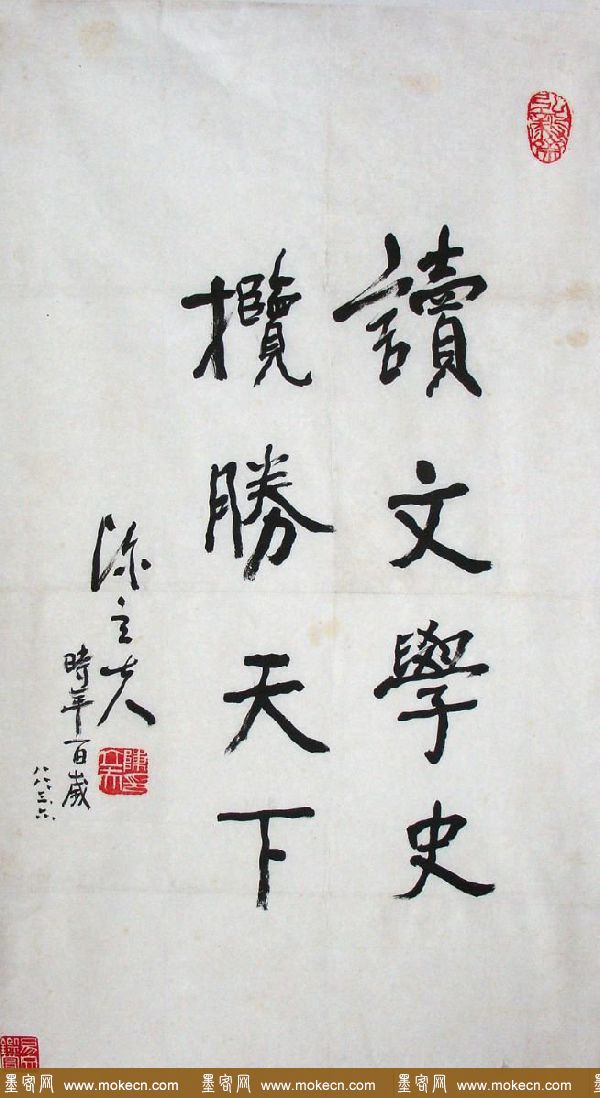 讀文學史
攬勝天下
陳立夫
時年百歲
八八、三、六
陳立夫印
墨客网 www.mokecn.com 墨客网 www.mokecn.com 墨客网 www.mokecn.com